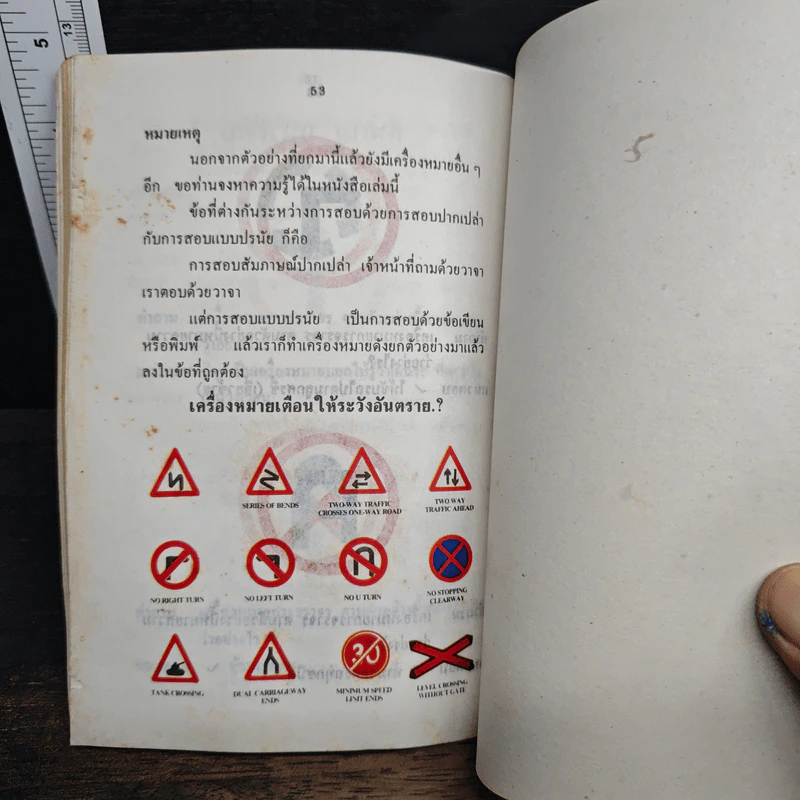 5
13
53
หมายเหตุ
นอกจากตัวอย่างที่ยกมานี้แล้วยังมีเครื่องหมายอื่น ๆ
อีก ขอท่านจงหาความรู้ได้ในหนังสือเล่มนี้
ข้อที่ต่างกันระหว่างการสอบด้วยการสอบปากเปล่า
กับการสอบแบบปรนัย ก็คือ
การสอบสัมภาษณ์ปากเปล่า เจ้าหน้าที่ถามด้วยวาจา
เราตอบด้วยวาจา
แต่การสอบแบบปรนัย เป็นการสอบด้วยข้อเขียน
หรือพิมพ์ แล้วเราก็ทำเครื่องหมายดังยกตัวอย่างมาแล้ว
ลงในข้อที่ถูกต้อง
เครื่องหมายเตือนให้ระวังอันตราย.?
SERIES OF BENDS
TWO-WAY TRAFFIC
CROSSES ONE-WAY ROAD
TWO WAY
TRAFFIC AHEAD
NO RIGHT TURN
NO LEFT TURN
NO U TURN
NO STOPPING
CLEARWAY
30
TANK CROSSING
DUAL CARRIAGEWAY
ENDS
MINIMUM SPEED
LIMIT ENDS
LEVEL CROSSING
WITHOUT GATE